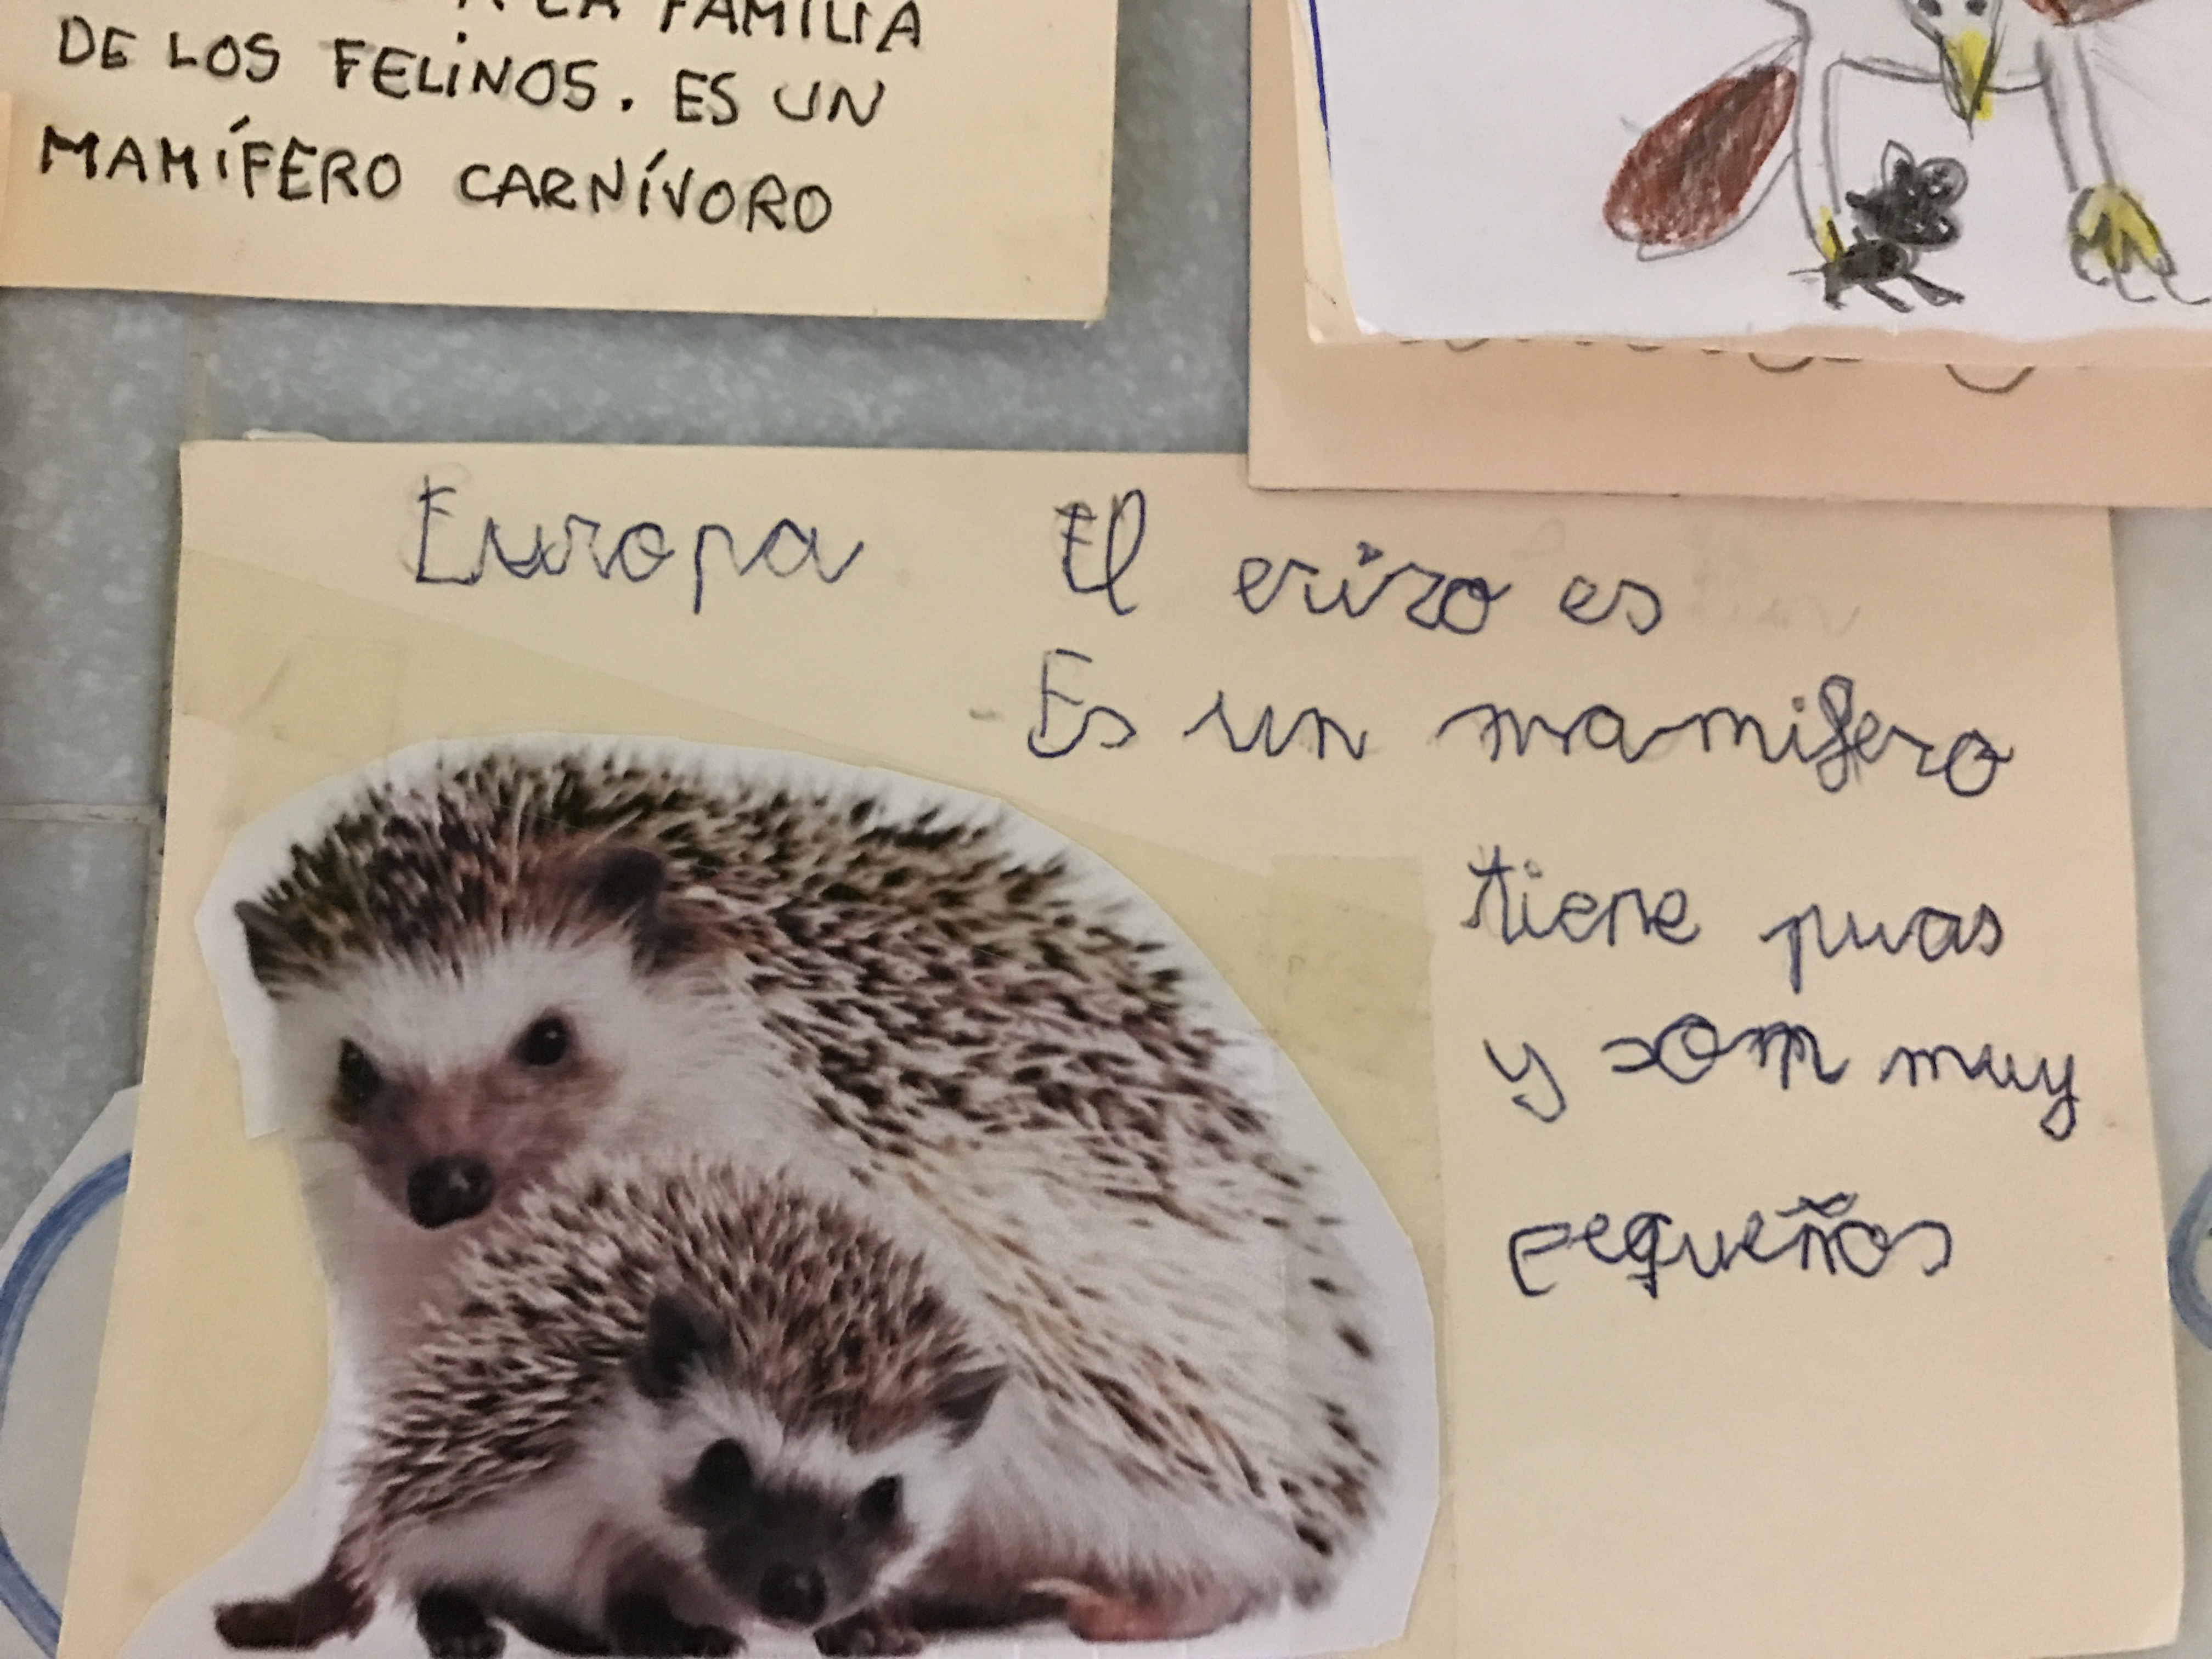 A LA FAMILIA
DE LOS FELINOS. ES UN
MAMÍFERO CARNÍVORO
Europa
El erizo es
Es un mamifero
tiene puas
y som muy
pequeños